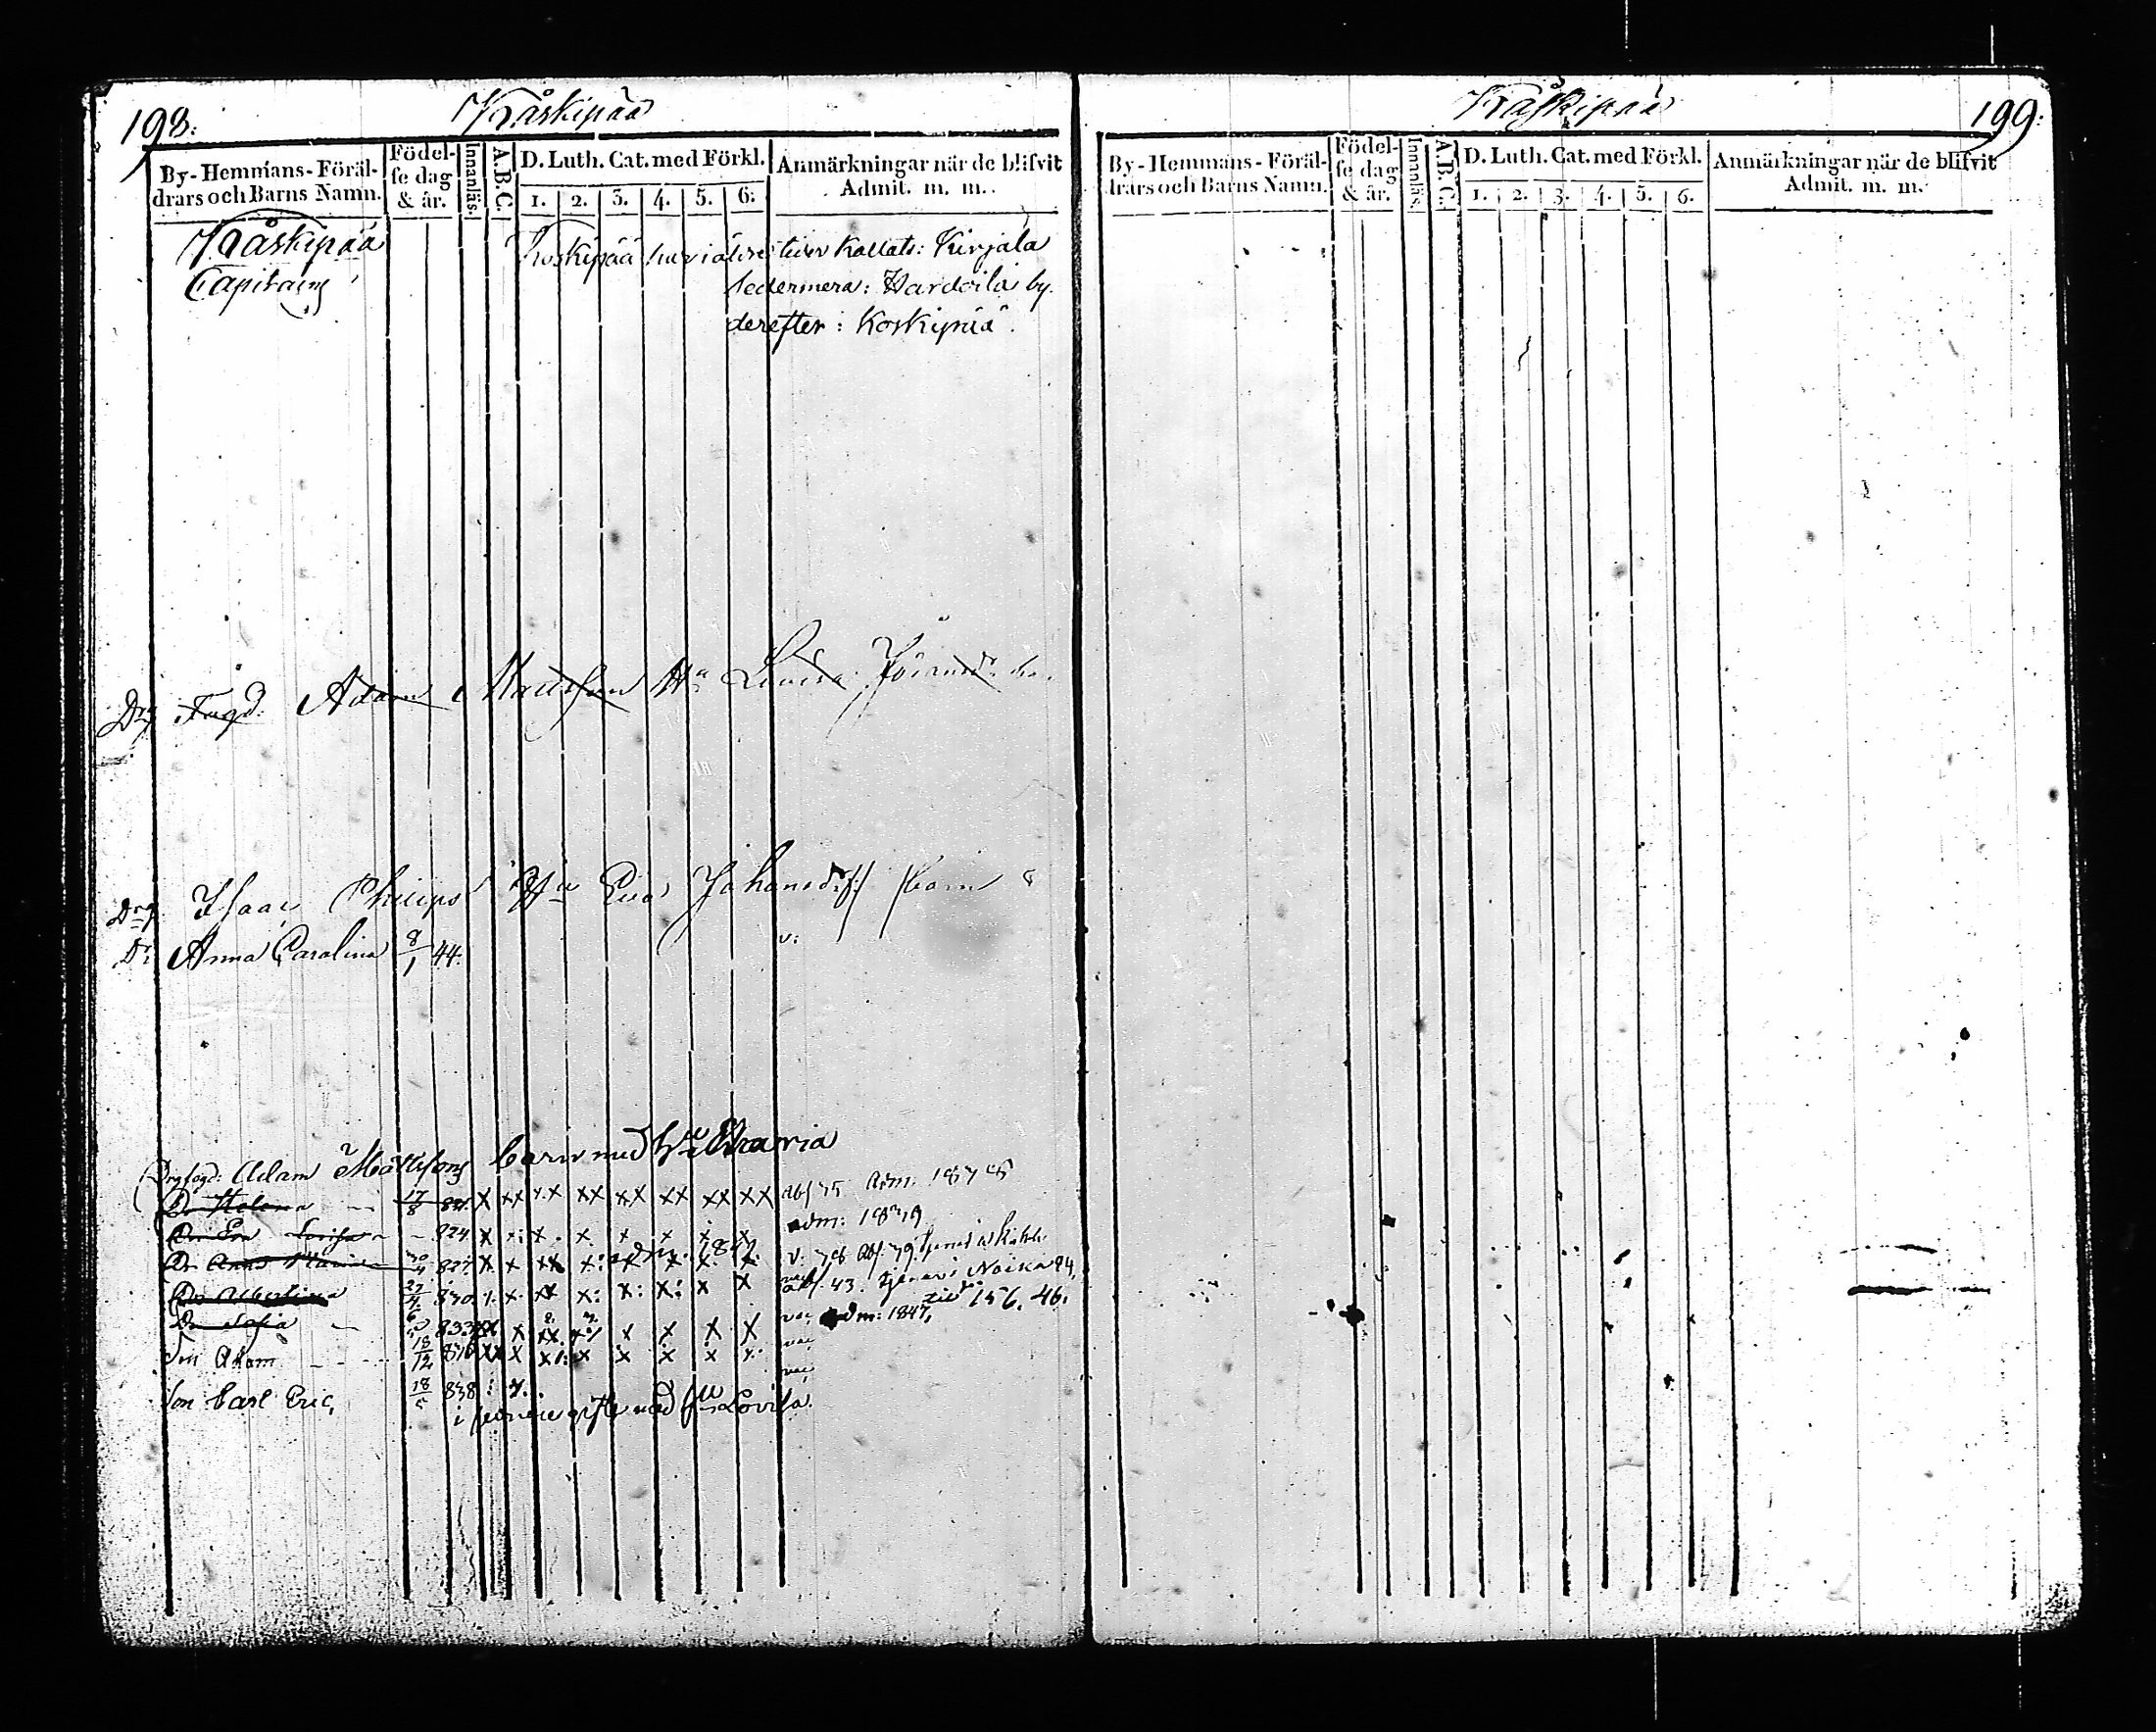 198:
Kåskipää
By-Hemmans-Föräl-
drars och Barns Namn.
Födel-
se dag
& år.
Innanläs.
A.B.C.
D. Luth. Cat. med Förkl.
1. 2. 3. 4. 5. 6.
Anmärkningar när de blifvit
Admit. m. m.
Kåskipää
Capitains
Koskipää har i äldre tider kallats: Kirjala
sedermera: Hardoila by.
derefter: Koskipää.
Drg Fogd: Adam Mattsson Hu Lovisa
Drg Isaac Philips Hu Eva Johansdr barn
Dr Anna Carolina 8/1 44. v:
Drgfogd: Adam Mattsons barn med Hu Maria
Dr Helena 17/8 821. X XX XX XX XX XX XX XX Abs 35 Adm: 1838
Dr Eva Lovisa 824 X X X X X X adm: 1839
Dr Anna Maria 827. X X XX X adm: 1842. v: 38 Abs: 39.
Dr Albertina 27/4 830. X XX X: X: X: X X abs. 43. tjenar i Noika 84.
till 156. 46.
Dr Sofia 833 X XX X X X X adm: 1847.
Son Adam 18/12 X X X X X X
Son Carl Eric, 18/5 838
i senare gifte med Hu Lovisa.
Kåskipää
199:
By-Hemmans-Föräl-
drars och Barns Namn.
Födel-
se dag
& år.
Innanläs.
A.B.C.
D. Luth. Cat. med Förkl.
1. 2. 3. 4. 5. 6.
Anmärkningar när de blifvit
Admit. m. m.